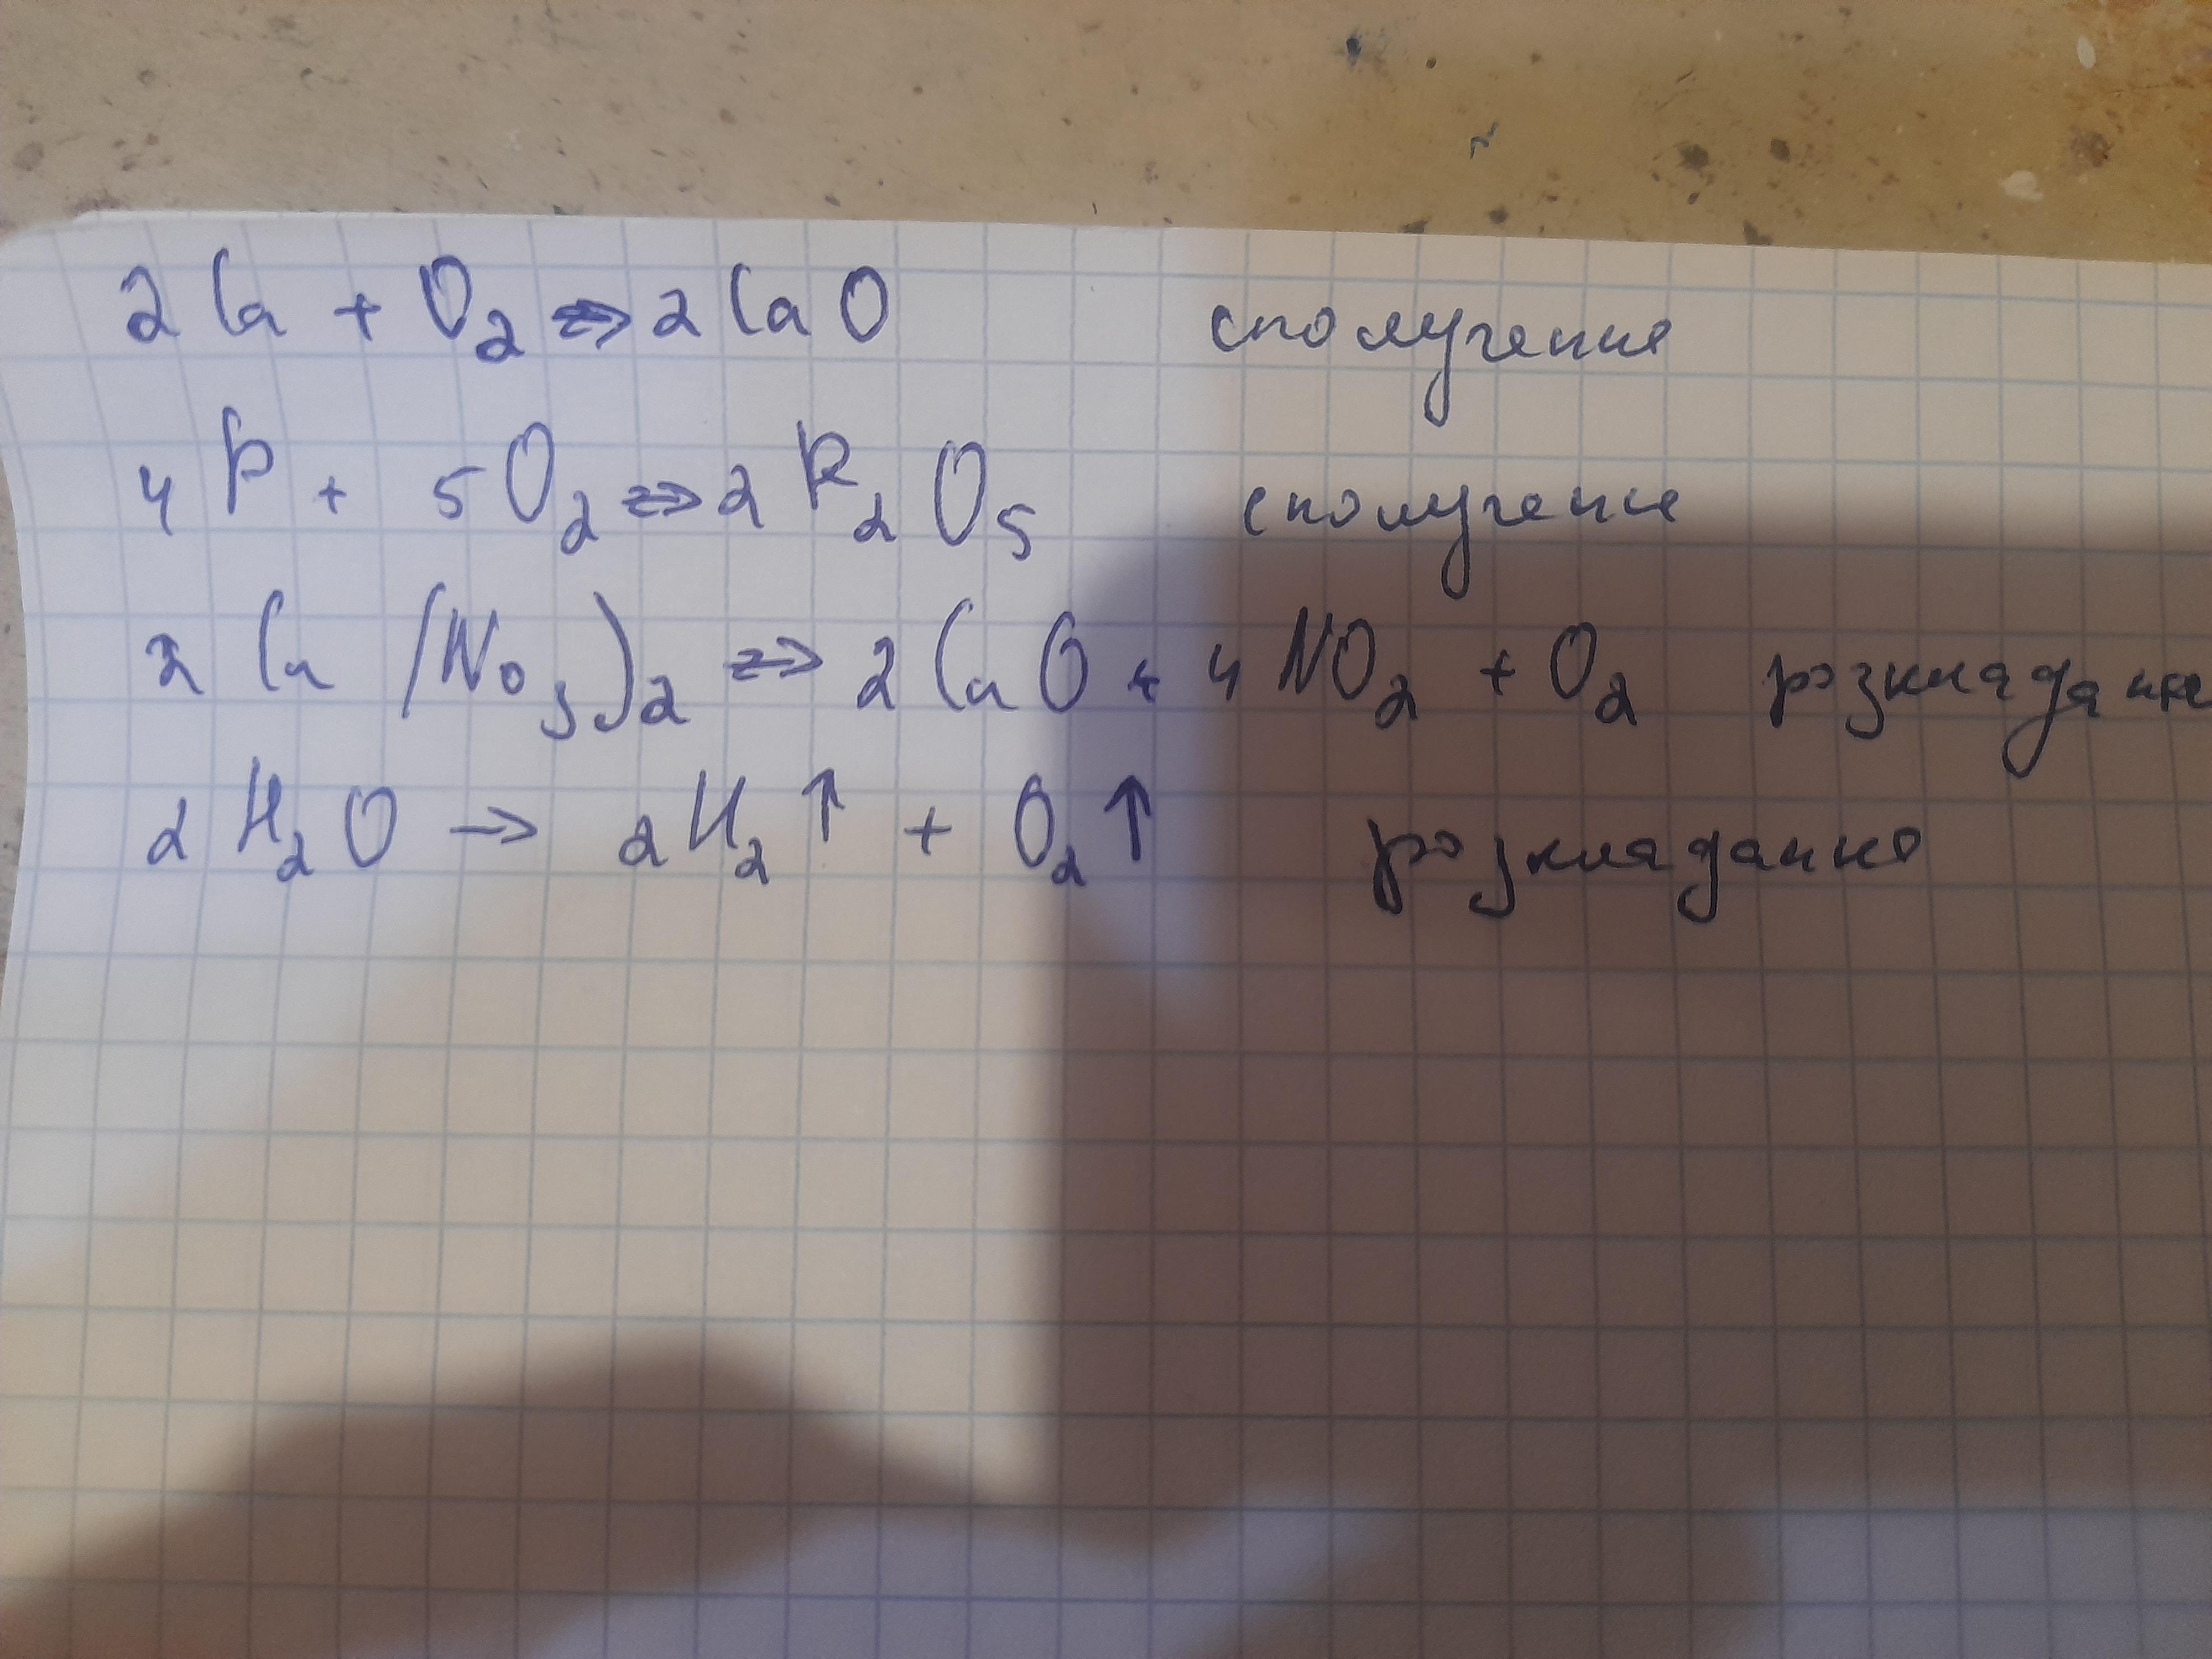 2Ca + O₂ => 2CaO сполучення
4P + 5O₂ => 2P₂O₅ сполучення
2Ca(NO₃)₂ => 2CaO + 4NO₂ + O₂ розкладання
2H₂O → 2H₂↑ + O₂↑ розкладання